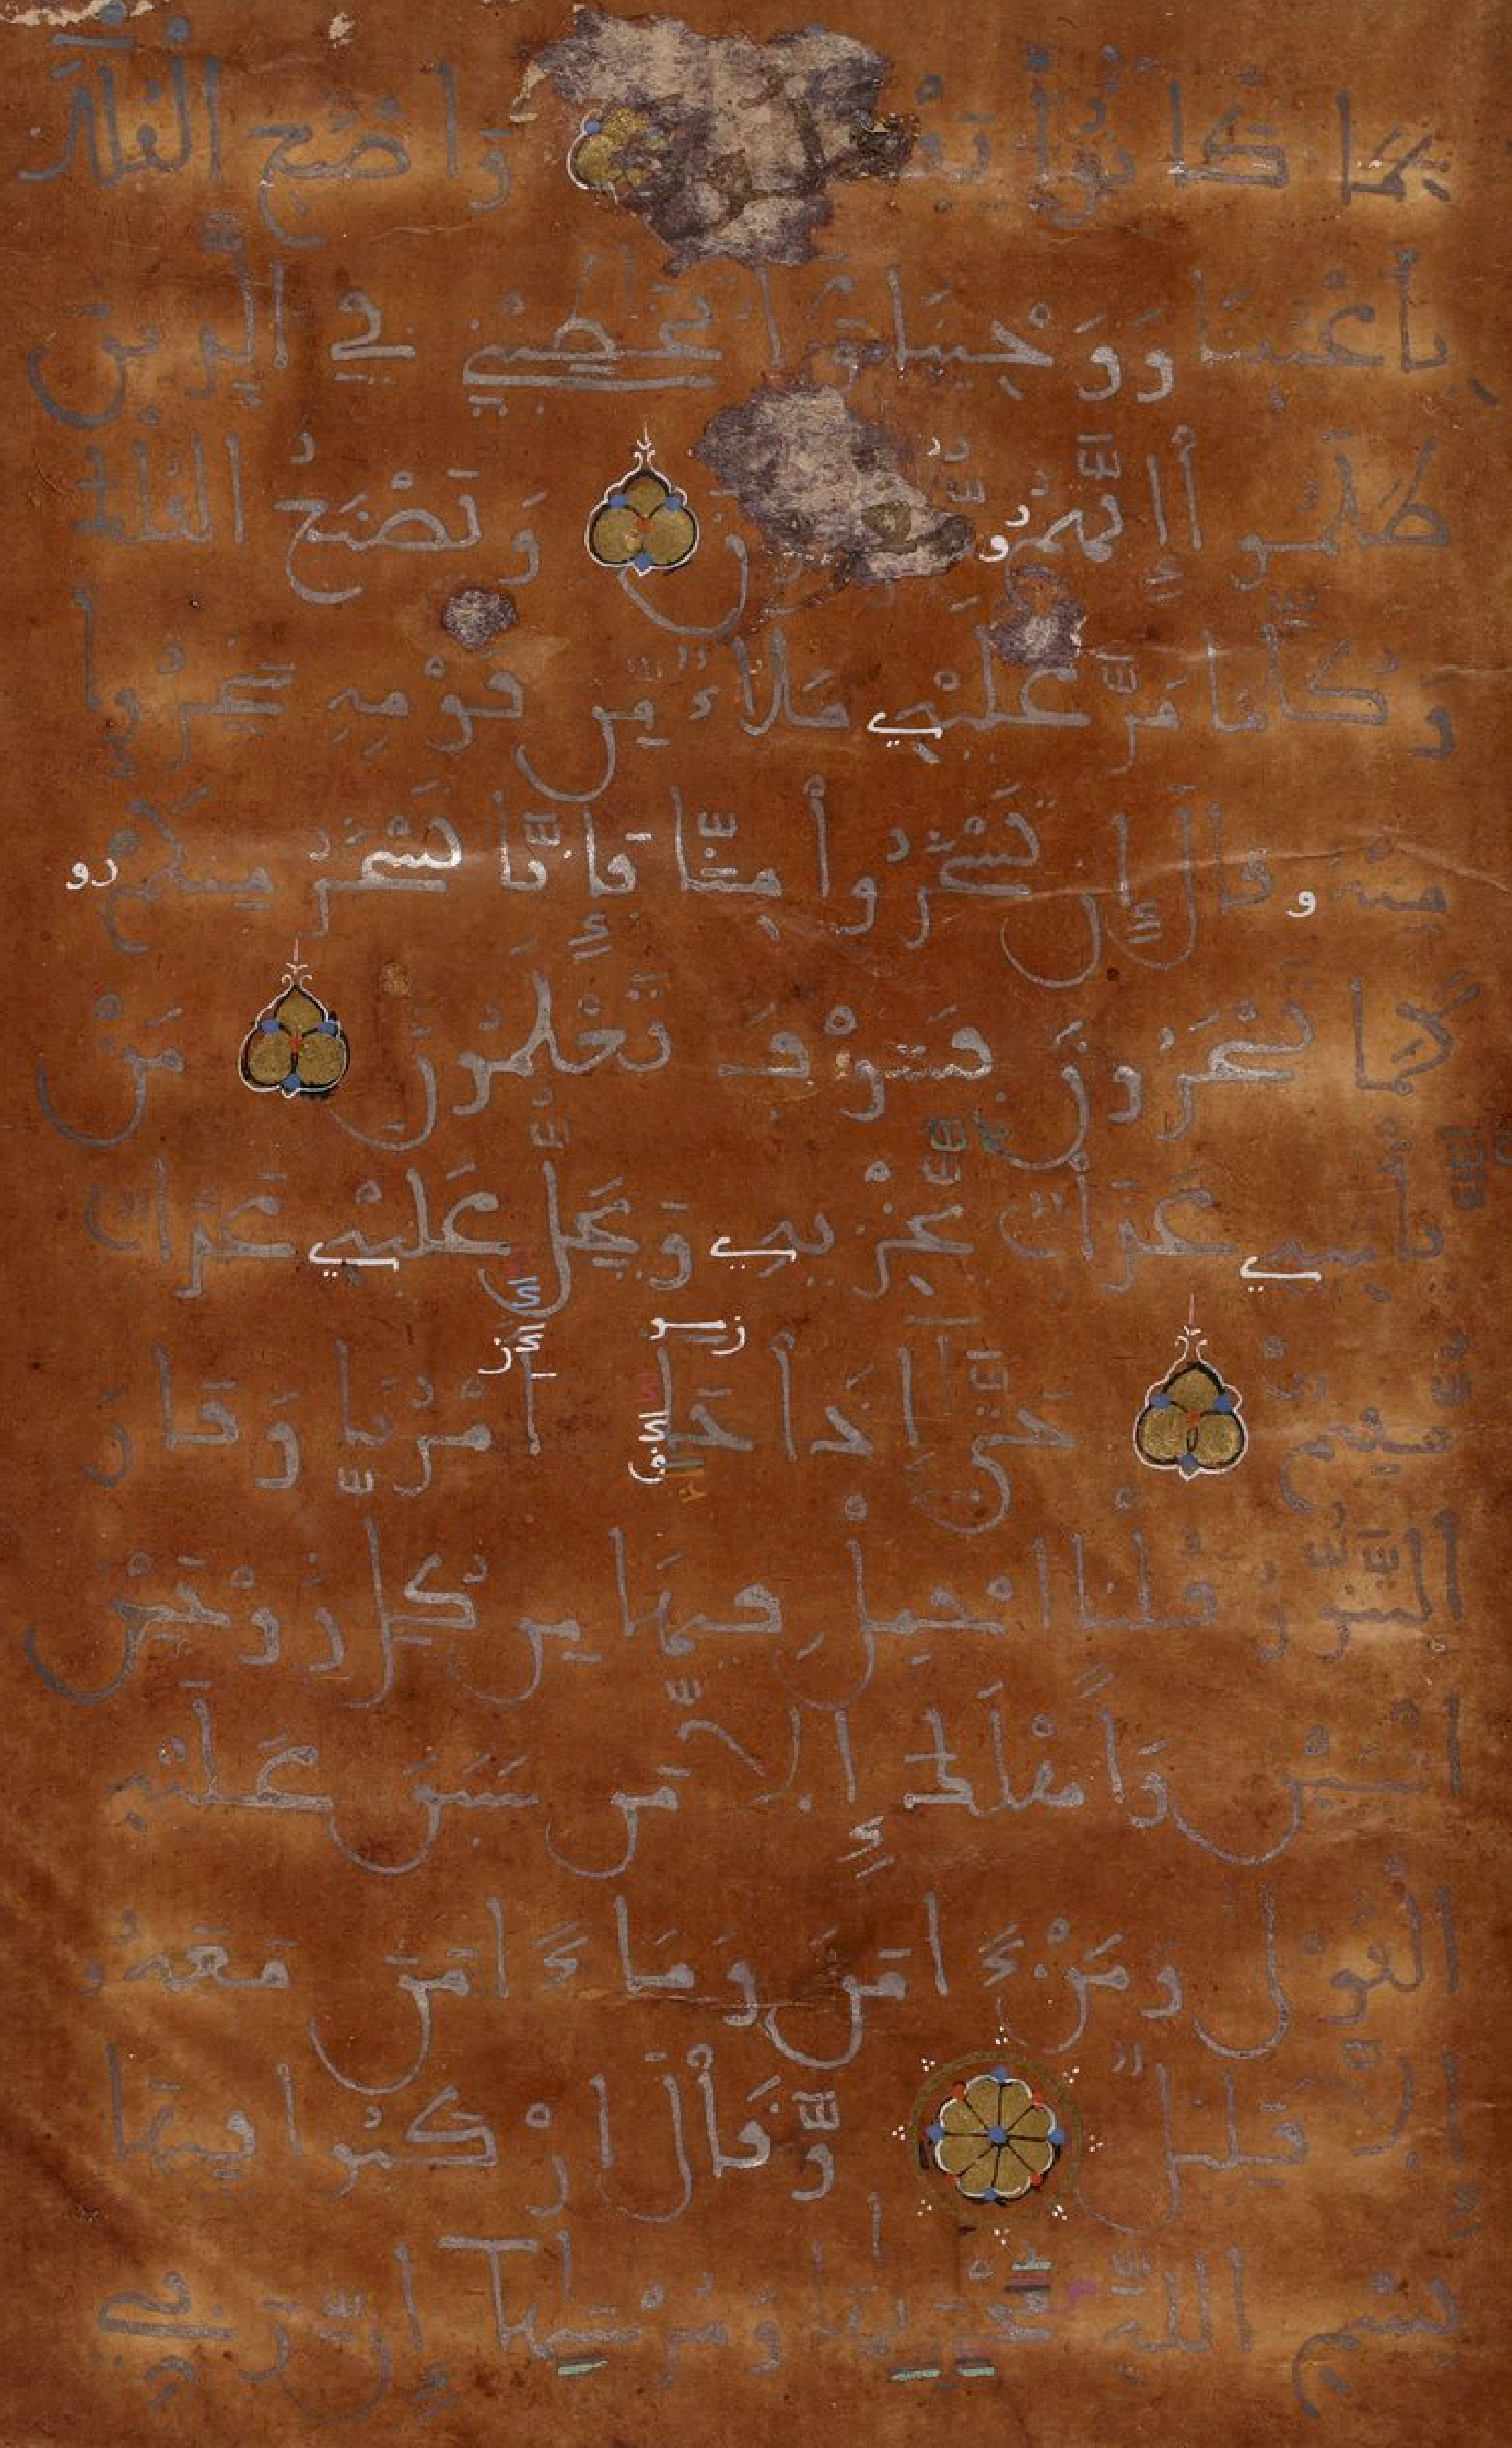 بما كانوا يفـ واصنع الفلك
بأعيننا ووحينا ولا تخطبني في الذين
ظلموا إنهم ون ويصنع الفلك
وكلما مر عليه ملأ من قومه سخروا
منه قال إن تسخروا منا فإنا نسخر منكم
كما تسخرون فسوف تعلمون من
يأتيه عذاب يخزيه ويحل عليه عذاب
مقيم حتى إذا جا أمرنا وفار
التنور قلنا احمل فيها من كل زوجين
اثنين وأهلك إلا من سبق عليه
القول ومن ءامن وما ءامن معه
إلا قليل وقال اركبوا فيها
بسم الله مجريها ومرسيها إن ربي